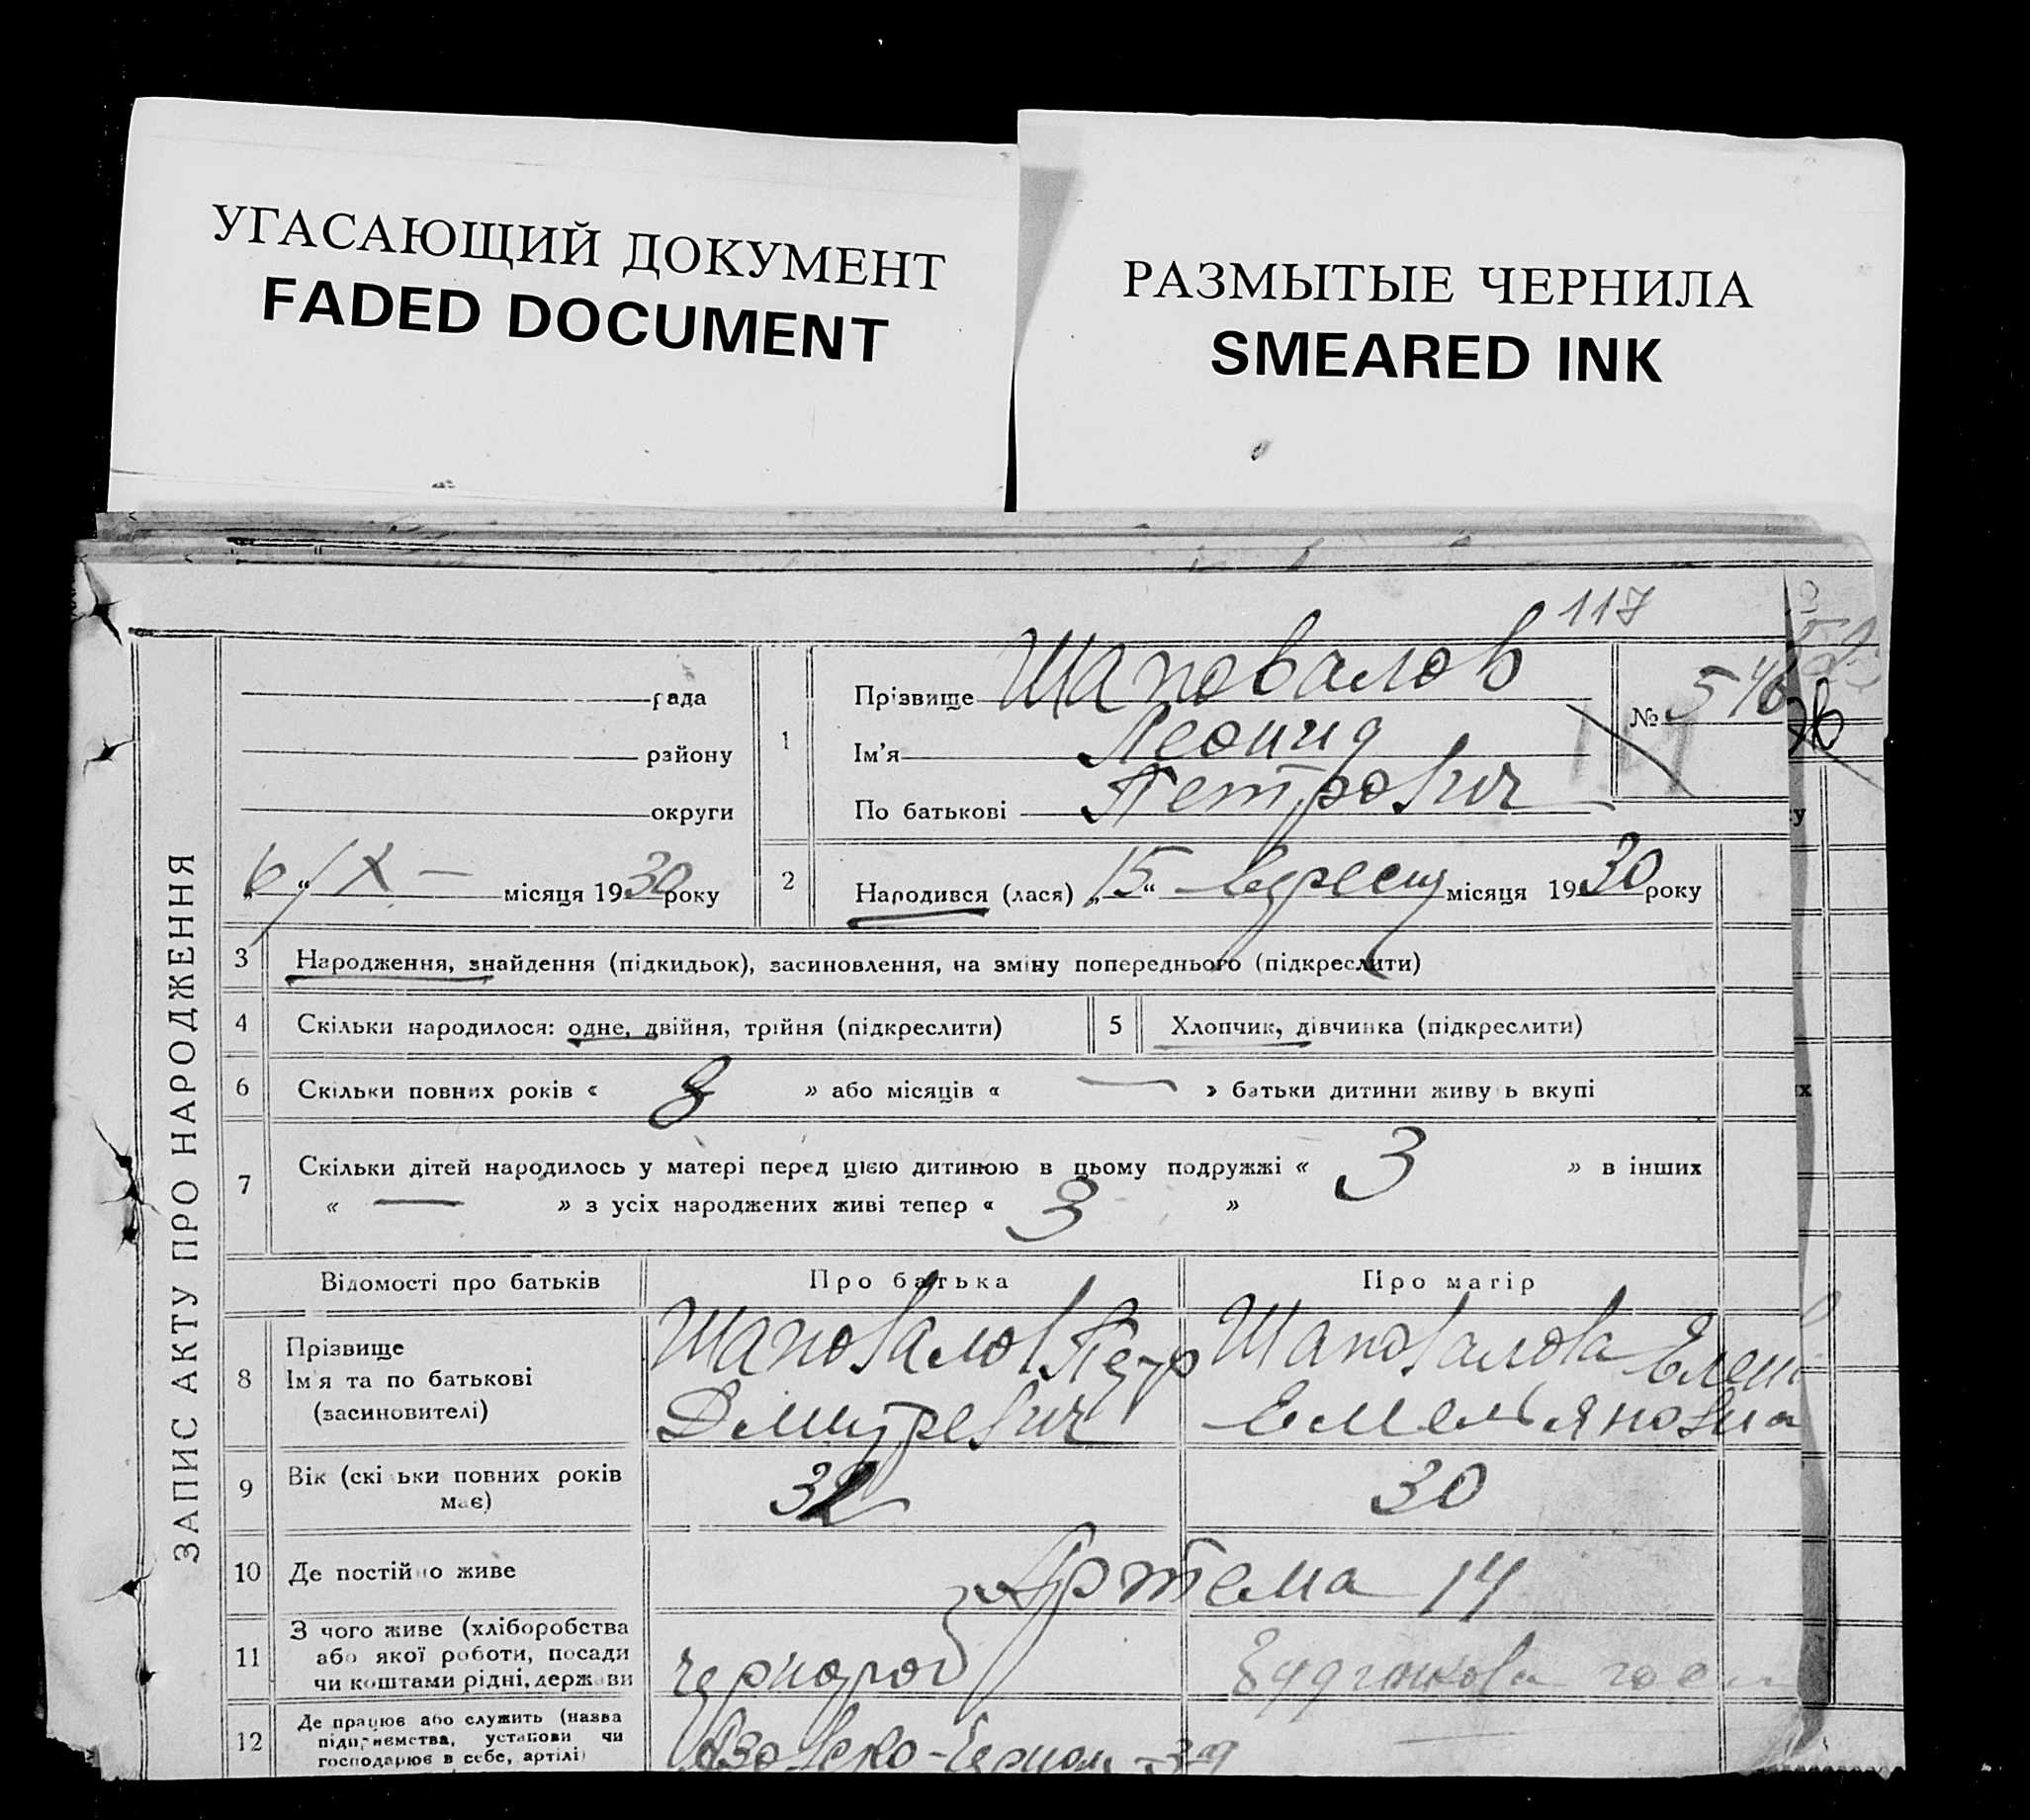 УГАСАЮЩИЙ ДОКУМЕНТ
FADED DOCUMENT
РАЗМЫТЫЕ ЧЕРНИЛА
SMEARED INK
117
ЗАПИС АКТУ ПРО НАРОДЖЕННЯ
рада
району
округи
6 "/IX — місяця 1930 року
1
Прізвище Шаповалов
Ім'я Леонид
По батькові Петрович
№ 546
2
Народився (лася) „15“ вересня місяця 1930 року
3 Народження, знайдення (підкидьок), засиновлення, на зміну попереднього (підкреслити)
4 Скільки народилося: одне, двійня, трійня (підкреслити)
5 Хлопчик, дівчинка (підкреслити)
6 Скільки повних років « 8 » або місяців « — » батьки дитини живуть вкупі
7 Скільки дітей народилось у матері перед цією дитиною в цьому подружжі « 3 » в інших
« — » з усіх народжених живі тепер « 3 »
Відомості про батьків
Про батька
Про матір
8 Прізвище
Ім'я та по батькові
(засиновителі)
Шаповалов Петр
Дмитревич
Шаповалова Елен
Емельяновна
9 Вік (скільки повних років
має)
32
30
10 Де постійно живе
Артема 14
11 З чого живе (хліборобства
або якої роботи, посади
чи коштами рідні, держави
чернороб
12 Де працює або служить (назва
підприємства, установи чи
господарює в себе, артілі)
Азовско-Черном